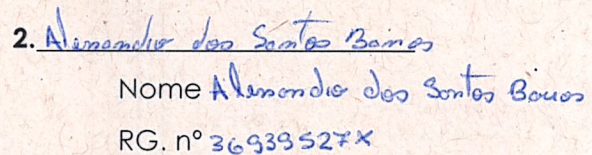 2. Alexandro dos Santos Barros
Nome Alexandro dos Santos Barros
RG. nº 36939527X